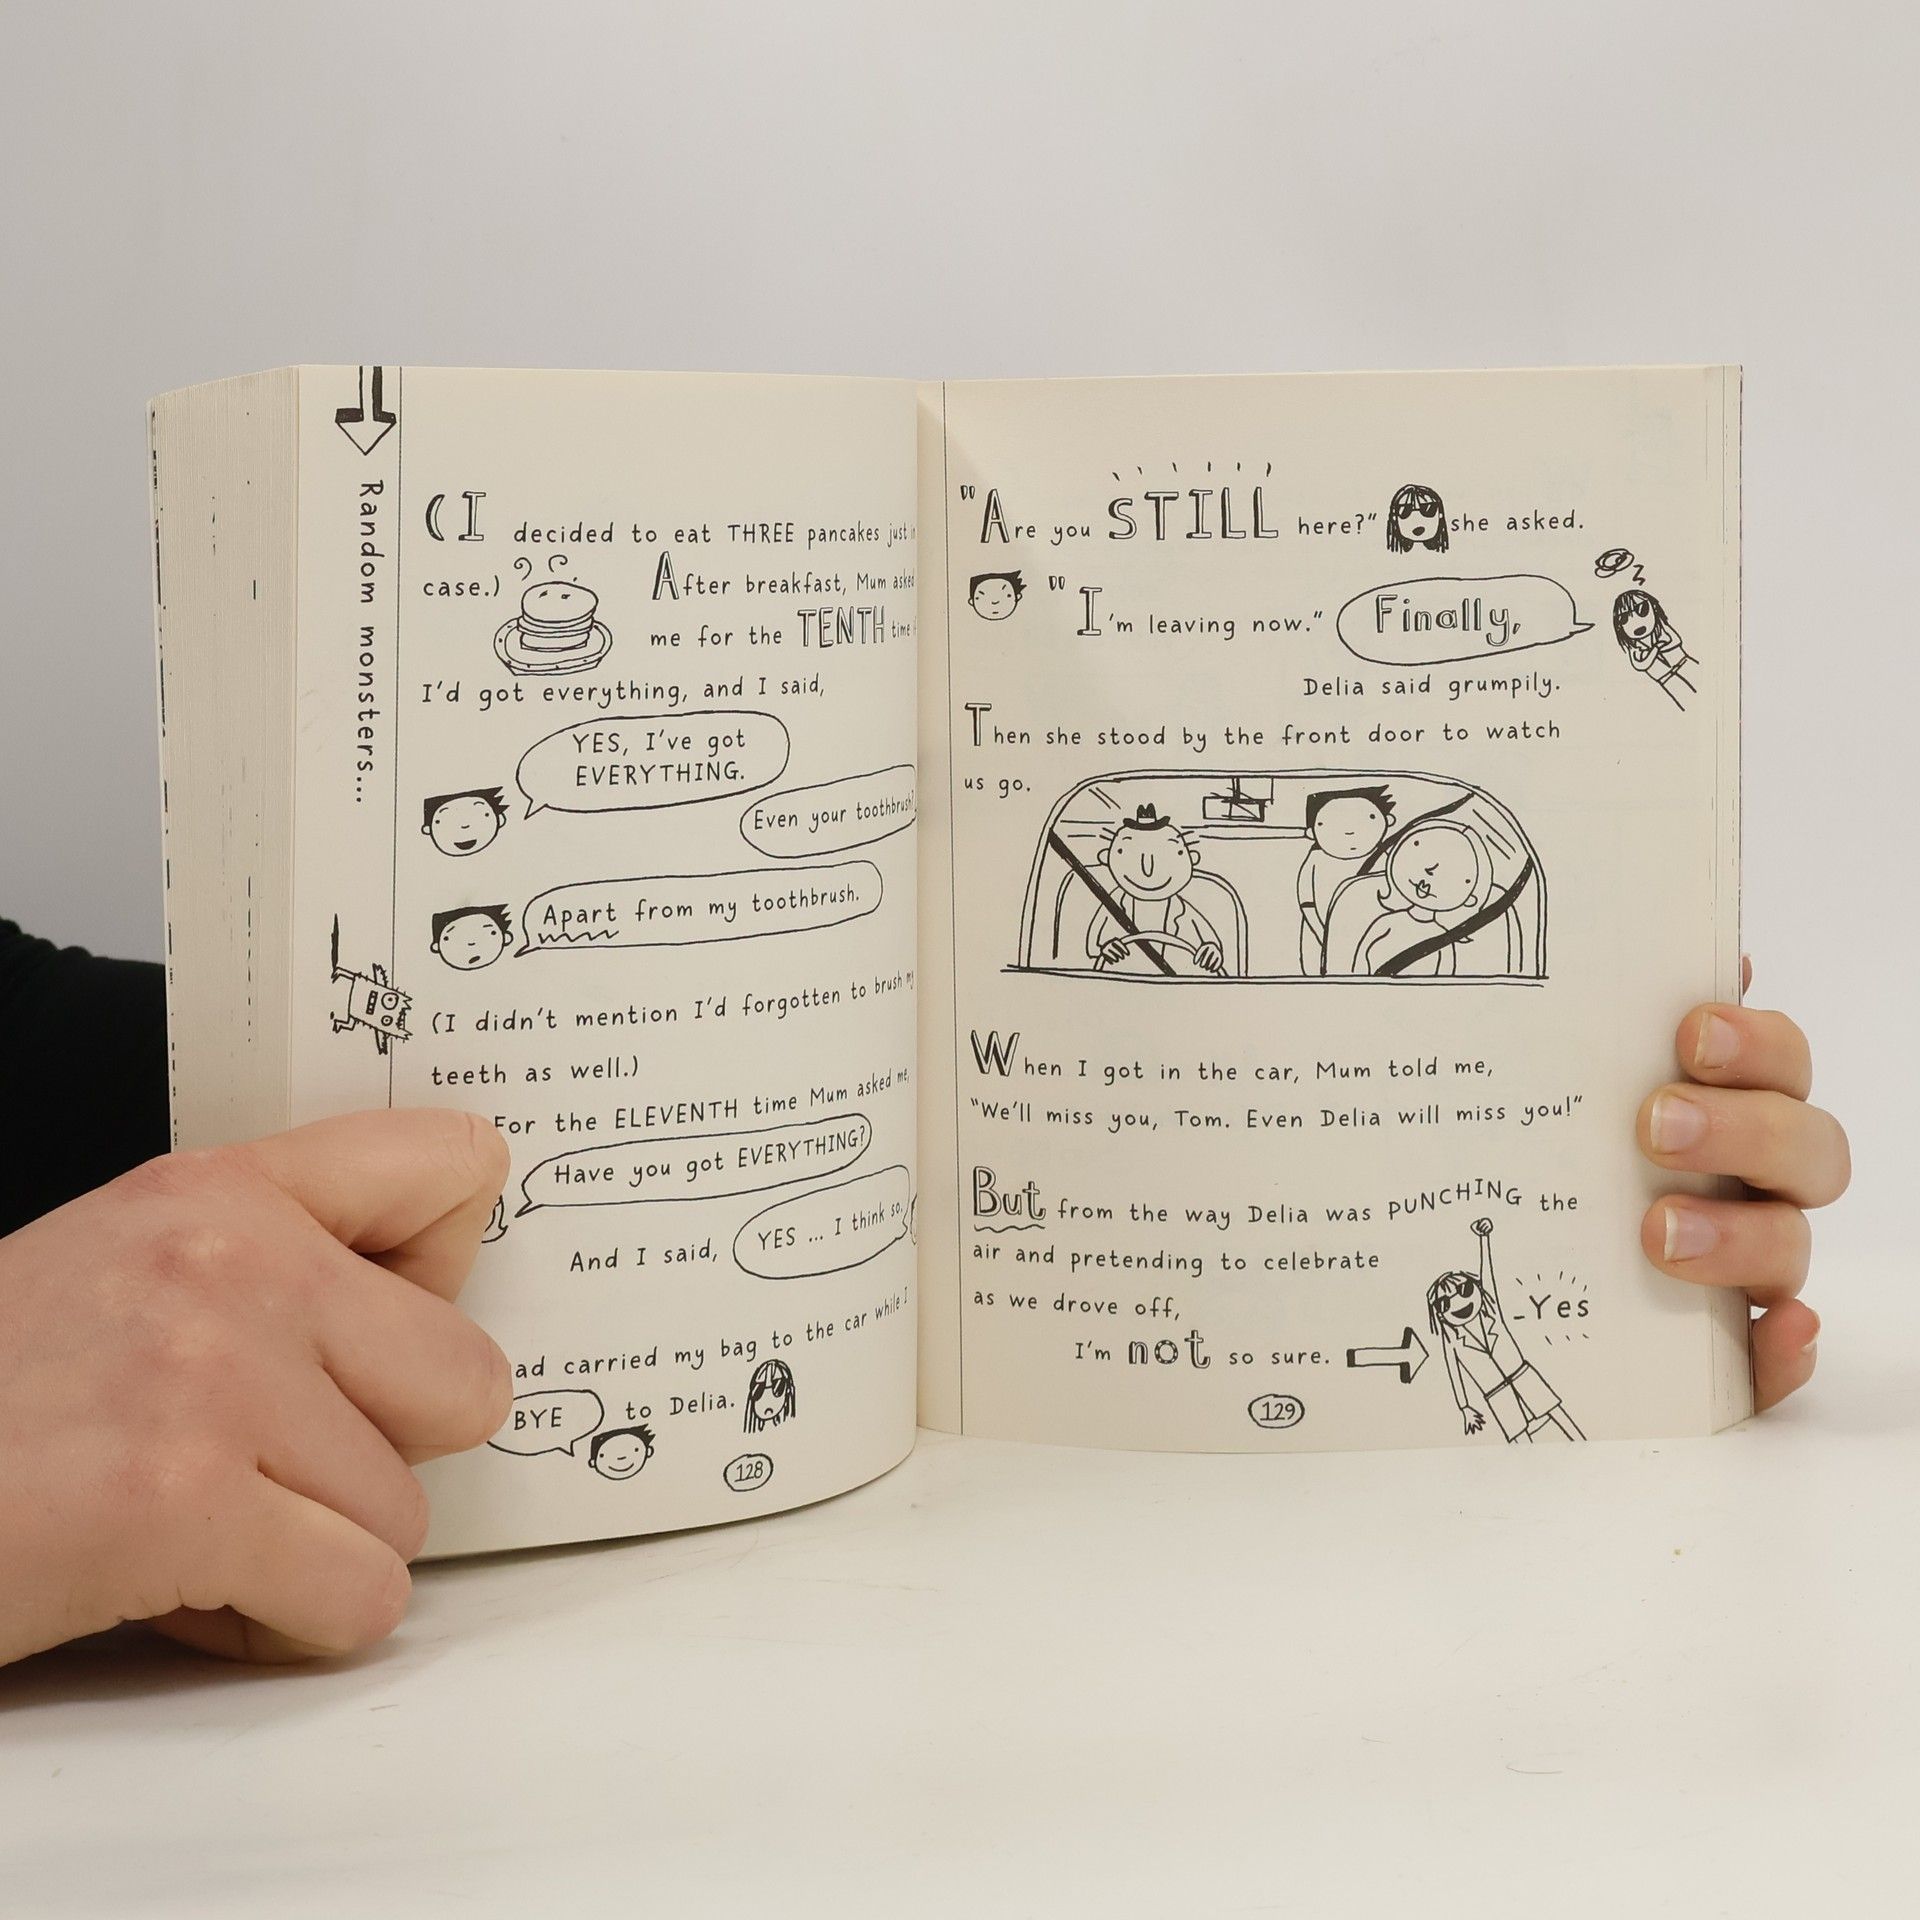 Random monsters...
(I decided to eat THREE pancakes just in
case.) After breakfast, Mum asked
me for the TENTH time if
I'd got everything, and I said,
YES, I've got
EVERYTHING.
Even your toothbrush?
Apart from my toothbrush.
(I didn't mention I'd forgotten to brush my
teeth as well.)
For the ELEVENTH time Mum asked me,
Have you got EVERYTHING?
And I said, YES ... I think so.
carried my bag to the car while I
BYE to Delia.
128
"Are you STILL here?" she asked.
"I'm leaving now." Finally,
Delia said grumpily.
Then she stood by the front door to watch
us go.
When I got in the car, Mum told me,
"We'll miss you, Tom. Even Delia will miss you!"
But from the way Delia was PUNCHING the
air and pretending to celebrate
as we drove off,
I'm not so sure.
Yes
129